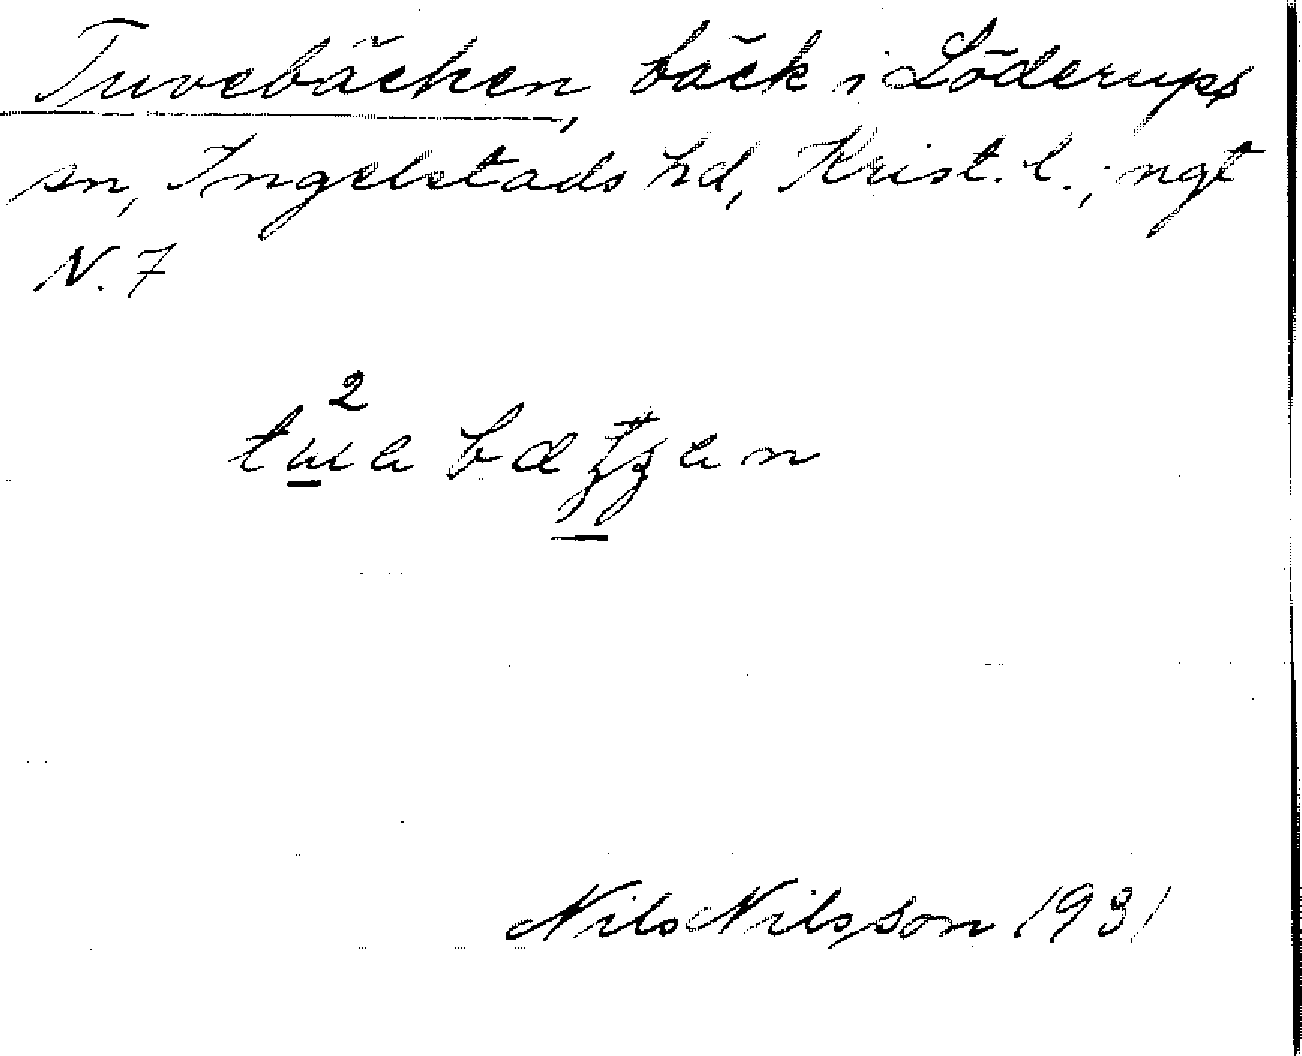 Tuvebäcken, bäck i Löderups
sn, Ingelstads hd, Krist. l., ngt
N. 7
Nils Nilsson 1931